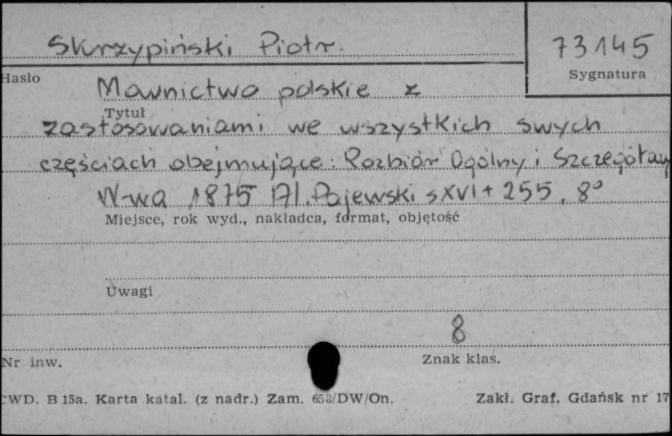 Skrzypiński Piotr.
73145
Hasło
Sygnatura
Mownictwo polskie z
Tytuł
zastosowaniami we wszystkich swych
częściach obejmujące: Rozbiór Ogólny i Szczegółowy
W-wa 1875 Dr. Pajewski s XVI + 255. 8°
Miejsce, rok wyd., nakładca, format, objętość
Uwagi
8
Nr inw.
Znak klas.
WD. B 15a. Karta katal. (z nadr.) Zam. 653/DW/On.
Zakł. Graf. Gdańsk nr 17